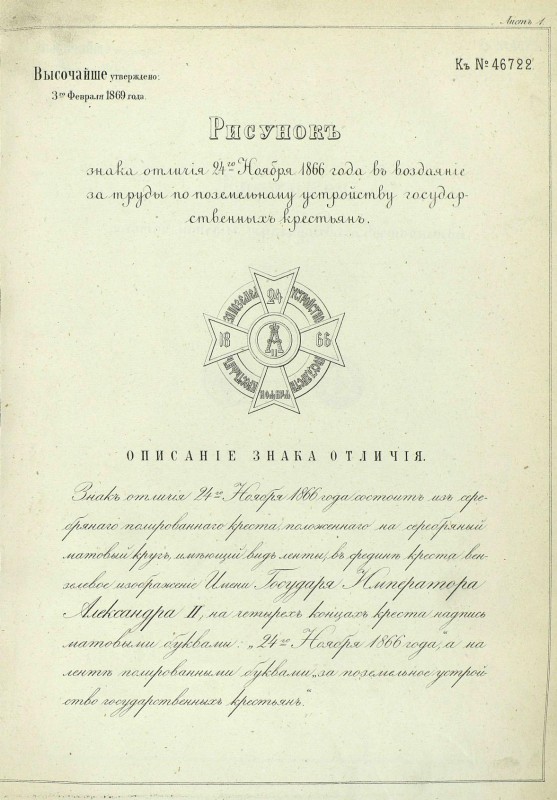 Листъ 1.
Къ № 46722
Высочайше утверждено:
3го Февраля 1869 года.
Рисунокъ
знака отличія 24го Ноября 1866 года въ воздаяніе
за труды по поземельному устройству государ-
ственныхъ крестьянъ.
24
18 66
А
II
УСТРОЙСТВО
НОЯБРЯ
ОПИСАНІЕ ЗНАКА ОТЛИЧІЯ.
Знакъ отличія 24го Ноября 1866 года состоитъ изъ сере-
брянаго полированнаго креста, положеннаго на серебряный
матовый кругъ, имѣющій видъ ленты; въ срединѣ креста вен-
зелевое изображеніе Имени Государя Императора
Александра II, на четырехъ концахъ креста надпись
матовыми буквами: „24го Ноября 1866 года“, а на
лентѣ полированными буквами „за поземельное устрой-
ство государственныхъ крестьянъ.“